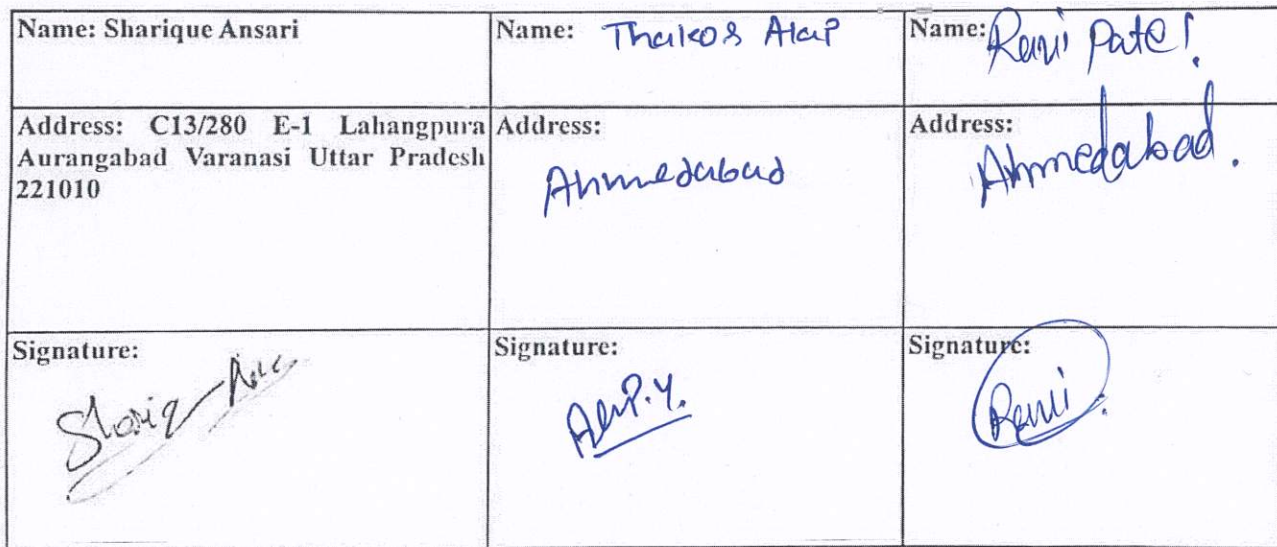 Name: Sharique Ansari
Name: Thakor Alap
Name: Ravi Patel.
Address: C13/280 E-1 Lahangpura
Aurangabad Varanasi Uttar Pradesh
221010
Address:
Ahmedabad
Address:
Ahmedabad.
Signature:
Signature:
Signature:
Ravi.